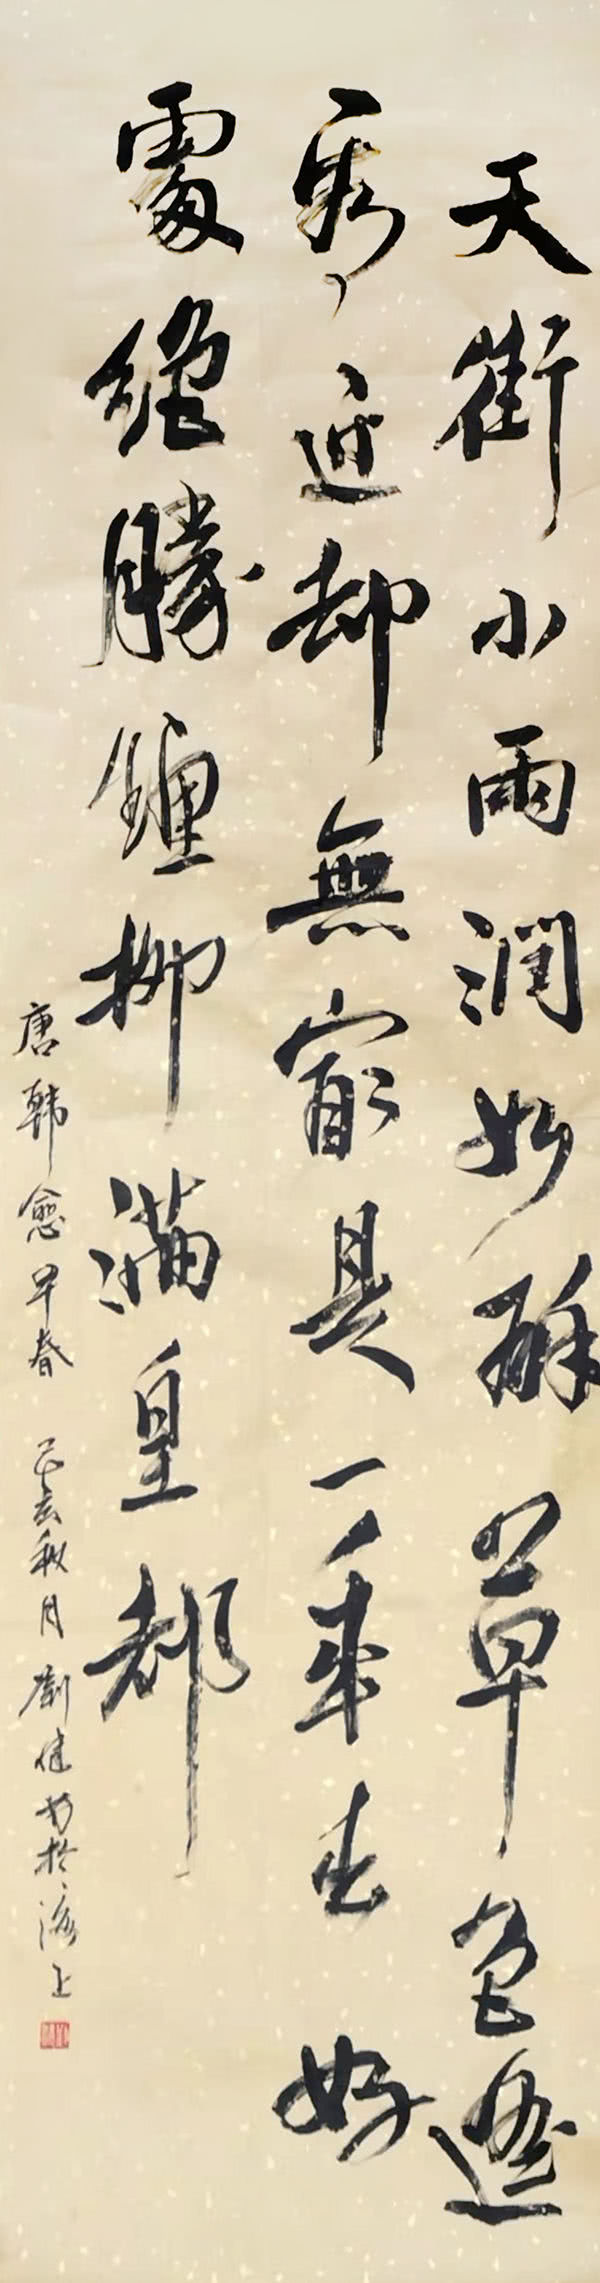 天街小雨潤如酥草色遙
看近却無最是一年春好
處絕勝煙柳滿皇都
唐韩愈早春 己亥秋月劉健书於海上